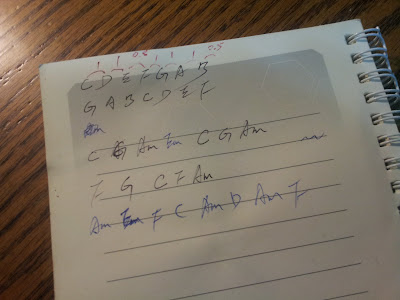 1 1 0.5 1 1 1 0.5
C D E F G A B
G A B C D E F
Am
C G Am Em C G Am
F G C F Am
Am Em F C Am D Am F